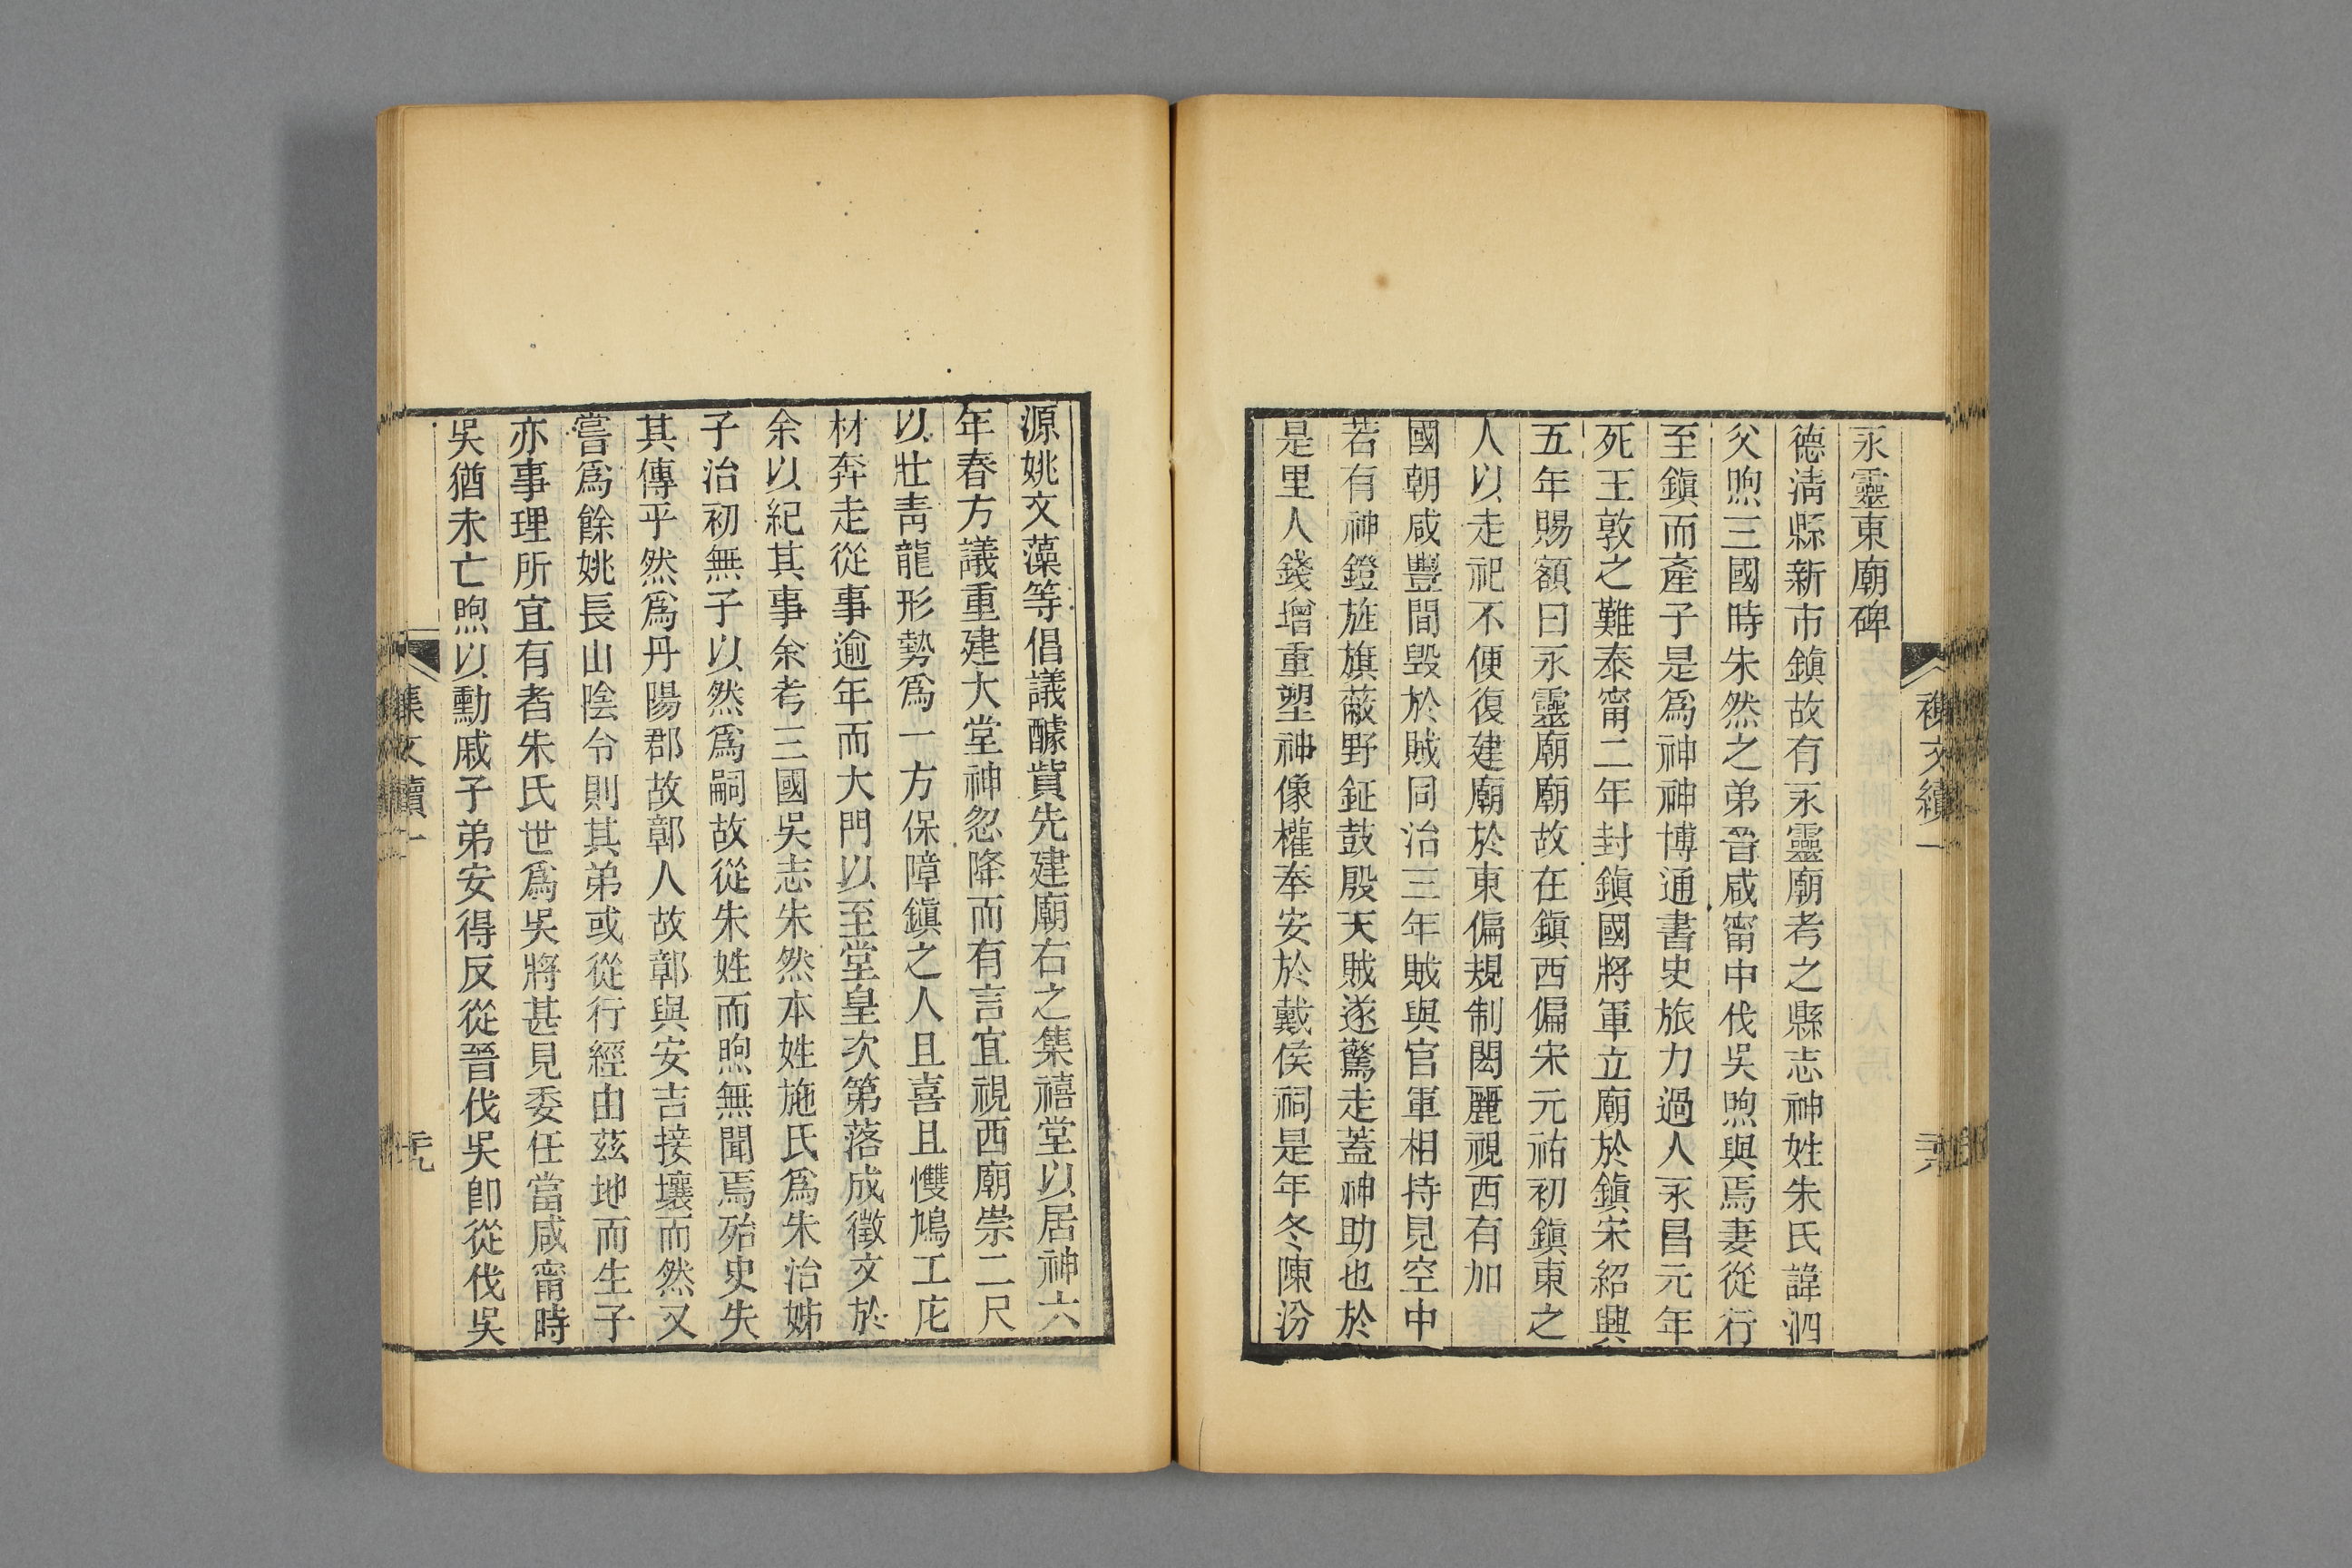 永靈東廟碑
德淸縣新市鎭故有永靈廟考之縣志神姓朱氏諱泗
父煦三國時朱然之弟晉咸甯中伐吳煦與焉妻從行
至鎭而產子是爲神神博通書史旅力過人永昌元年
死王敦之難泰甯二年封鎭國將軍立廟於鎭宋紹興
五年賜額曰永靈廟廟故在鎭西偏宋元祐初鎭東之
人以走祀不便復建廟於東偏規制閎麗視西有加
國朝咸豐間毀於賊同治三年賊與官軍相持見空中
若有神鐙旌旗蔽野鉦鼓殷天賊遂驚走蓋神助也於
是里人錢增重塑神像權奉安於戴侯祠是年冬陳汾
源姚文藻等倡議醵貲先建廟右之集禧堂以居神六
年春方議重建大堂神忽降而有言宜視西廟崇二尺
以壯靑龍形勢爲一方保障鎭之人且喜且懽鳩工庀
材奔走從事逾年而大門以至堂皇次第落成徵文於
余以紀其事余考三國吳志朱然本姓施氏爲朱治姊
子治初無子以然爲嗣故從朱姓而煦無聞焉殆史失
其傳乎然爲丹陽郡故鄣人故鄣與安吉接壤而然又
嘗爲餘姚長山陰令則其弟或從行經由茲地而生子
亦事理所宜有者朱氏世爲吳將甚見委任當咸甯時
吳猶未亡煦以勳戚子弟安得反從晉伐吳卽從伐吳
文續一
集文續一